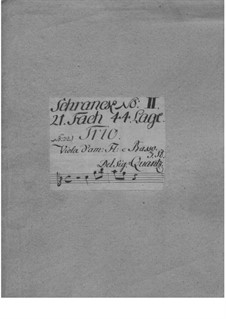 Schranck No: II.
21. Fach 44. Lage.
TRIO.
Viola d'am: Fl: e Basso
Del Sig. Quantz